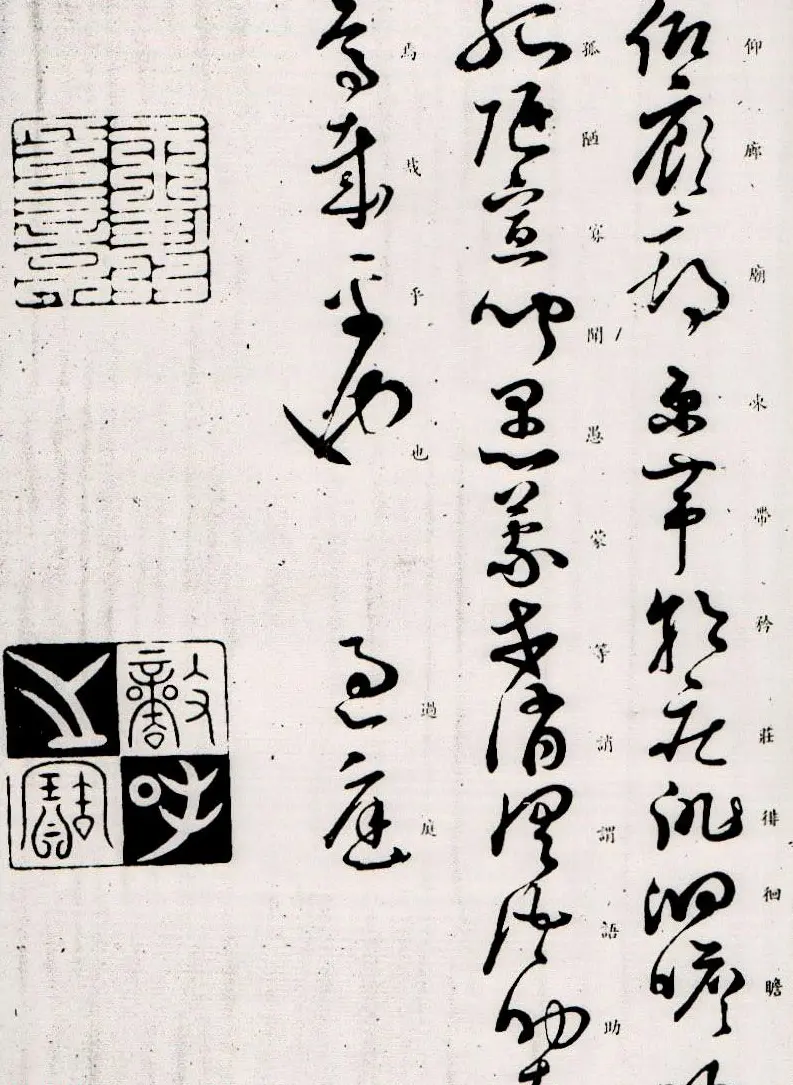 仰廊廟束帶矜莊徘徊瞻
孤陋寡聞愚蒙等誚謂語助
焉哉乎也
過庭